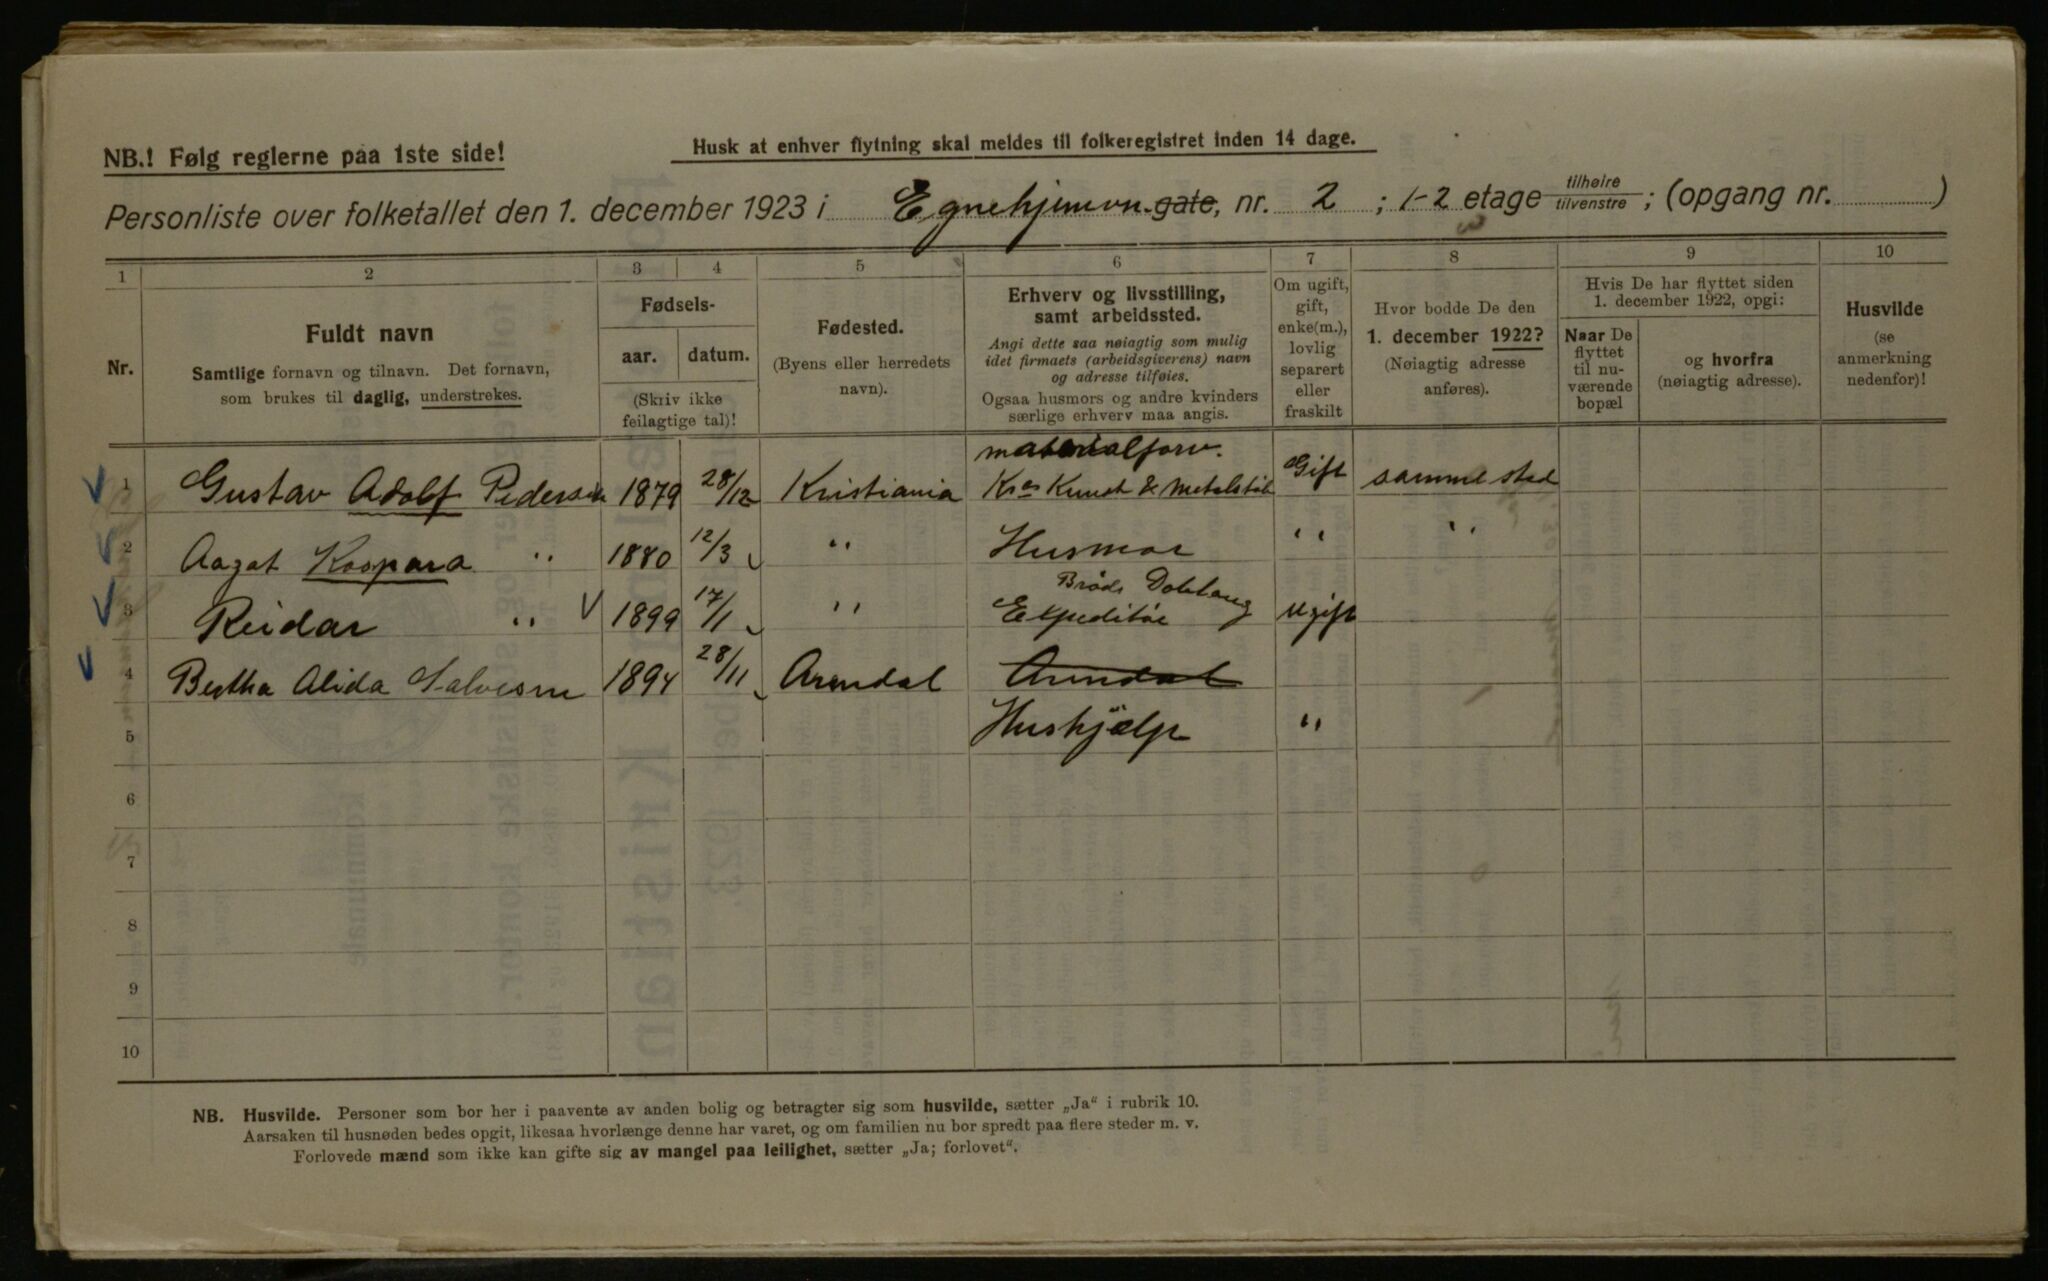 NB.! Følg reglerne paa 1ste side!
Husk at enhver flytning skal meldes til folkeregistret inden 14 dage.
Personliste over folketallet den 1. december 1923 i Egnehjemvn. gate, nr. 2 ; 1-2 etage tilhøire tilvenstre ; (opgang nr. )
1 2 3 4 5 6 7 8 9 10
Nr.
Fuldt navn
Samtlige fornavn og tilnavn. Det fornavn,
som brukes til daglig, understrekes.
Fødsels-
aar. datum.
(Skriv ikke
feilagtige tal)!
Fødested.
(Byens eller herredets
navn).
Erhverv og livsstilling,
samt arbeidssted.
Angi dette saa nøiagtig som mulig
idet firmaets (arbeidsgiverens) navn
og adresse tilføies.
Ogsaa husmors og andre kvinders
særlige erhverv maa angis.
Om ugift,
gift,
enke(m.),
lovlig
separert
eller
fraskilt
Hvor bodde De den
1. december 1922?
(Nøiagtig adresse
anføres).
Hvis De har flyttet siden
1. december 1922, opgi:
Naar De
flyttet
til nu-
værende
bopæl
og hvorfra
(nøiagtig adresse).
Husvilde
(se
anmerkning
nedenfor)!
materialforv.
1 Gustav Adolf Pedersen 1879 28/12 Kristiania Kr.as Kunst & Metalstøb Gift samme sted
2 Aagot Kaspara " 1880 12/3 " Husmor " "
Brøds
3 Reidar " 1899 17/1 " Expeditør Ugift
4 Bertha Alida Salvesen 1894 28/11 Arendal Arendal
5 Hushjælp "
6
7
8
9
10
NB. Husvilde. Personer som bor her i paavente av anden bolig og betragter sig som husvilde, sætter „Ja“ i rubrik 10.
Aarsaken til husnøden bedes opgit, likesaa hvorlænge denne har varet, og om familien nu bor spredt paa flere steder m. v.
Forlovede mænd som ikke kan gifte sig av mangel paa leilighet, sætter „Ja; forlovet“.